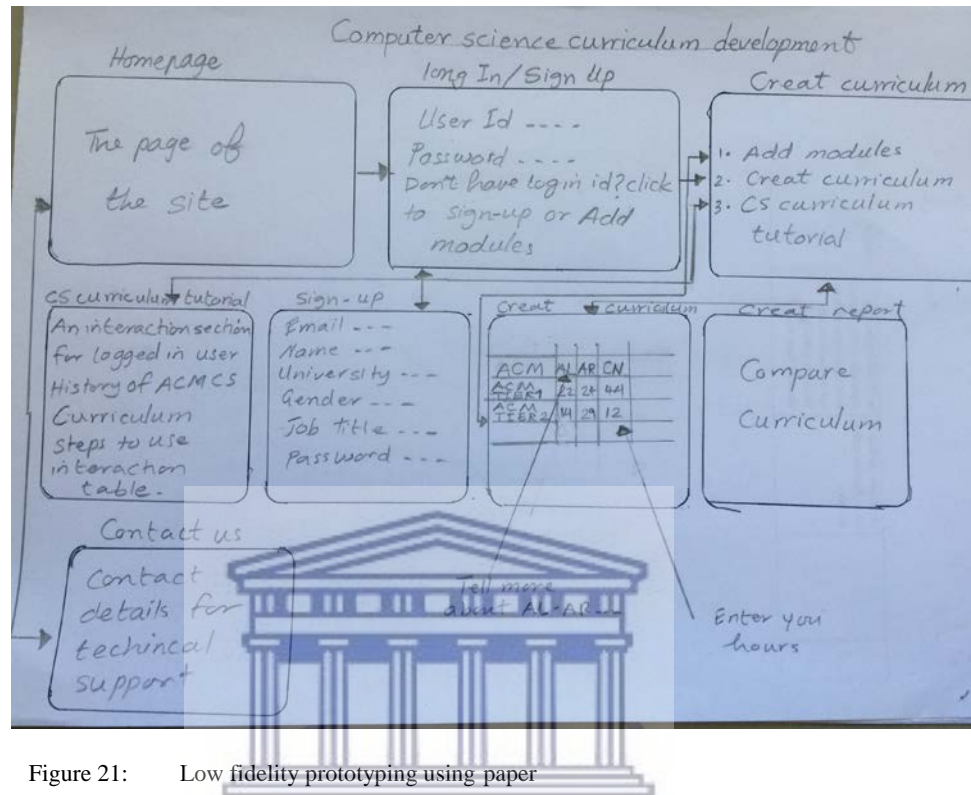 Computer science curriculum development
Homepage
The page of
the site
long In/Sign Up
User Id ----
Password ----
Don't have login id? click
to sign-up or Add
modules
Creat curriculum
1. Add modules
2. Creat curriculum
3. CS curriculum
tutorial
CS curriculum tutorial
An interaction section
for logged in user
History of ACM CS
Curriculum
Steps to use
interaction
table.
Sign-up
Email ---
Name ---
University ---
Gender ---
Job title ---
Password ---
Creat curriculum
ACM AL AR CN
ACM
TIER1 22 24 44
ACM
TIER2 14 29 12
Creat report
Compare
Curriculum
Contact us
Contact
details for
techincal
support
Tell more
about AL-AR---
Enter you
hours
Figure 21: Low fidelity prototyping using paper